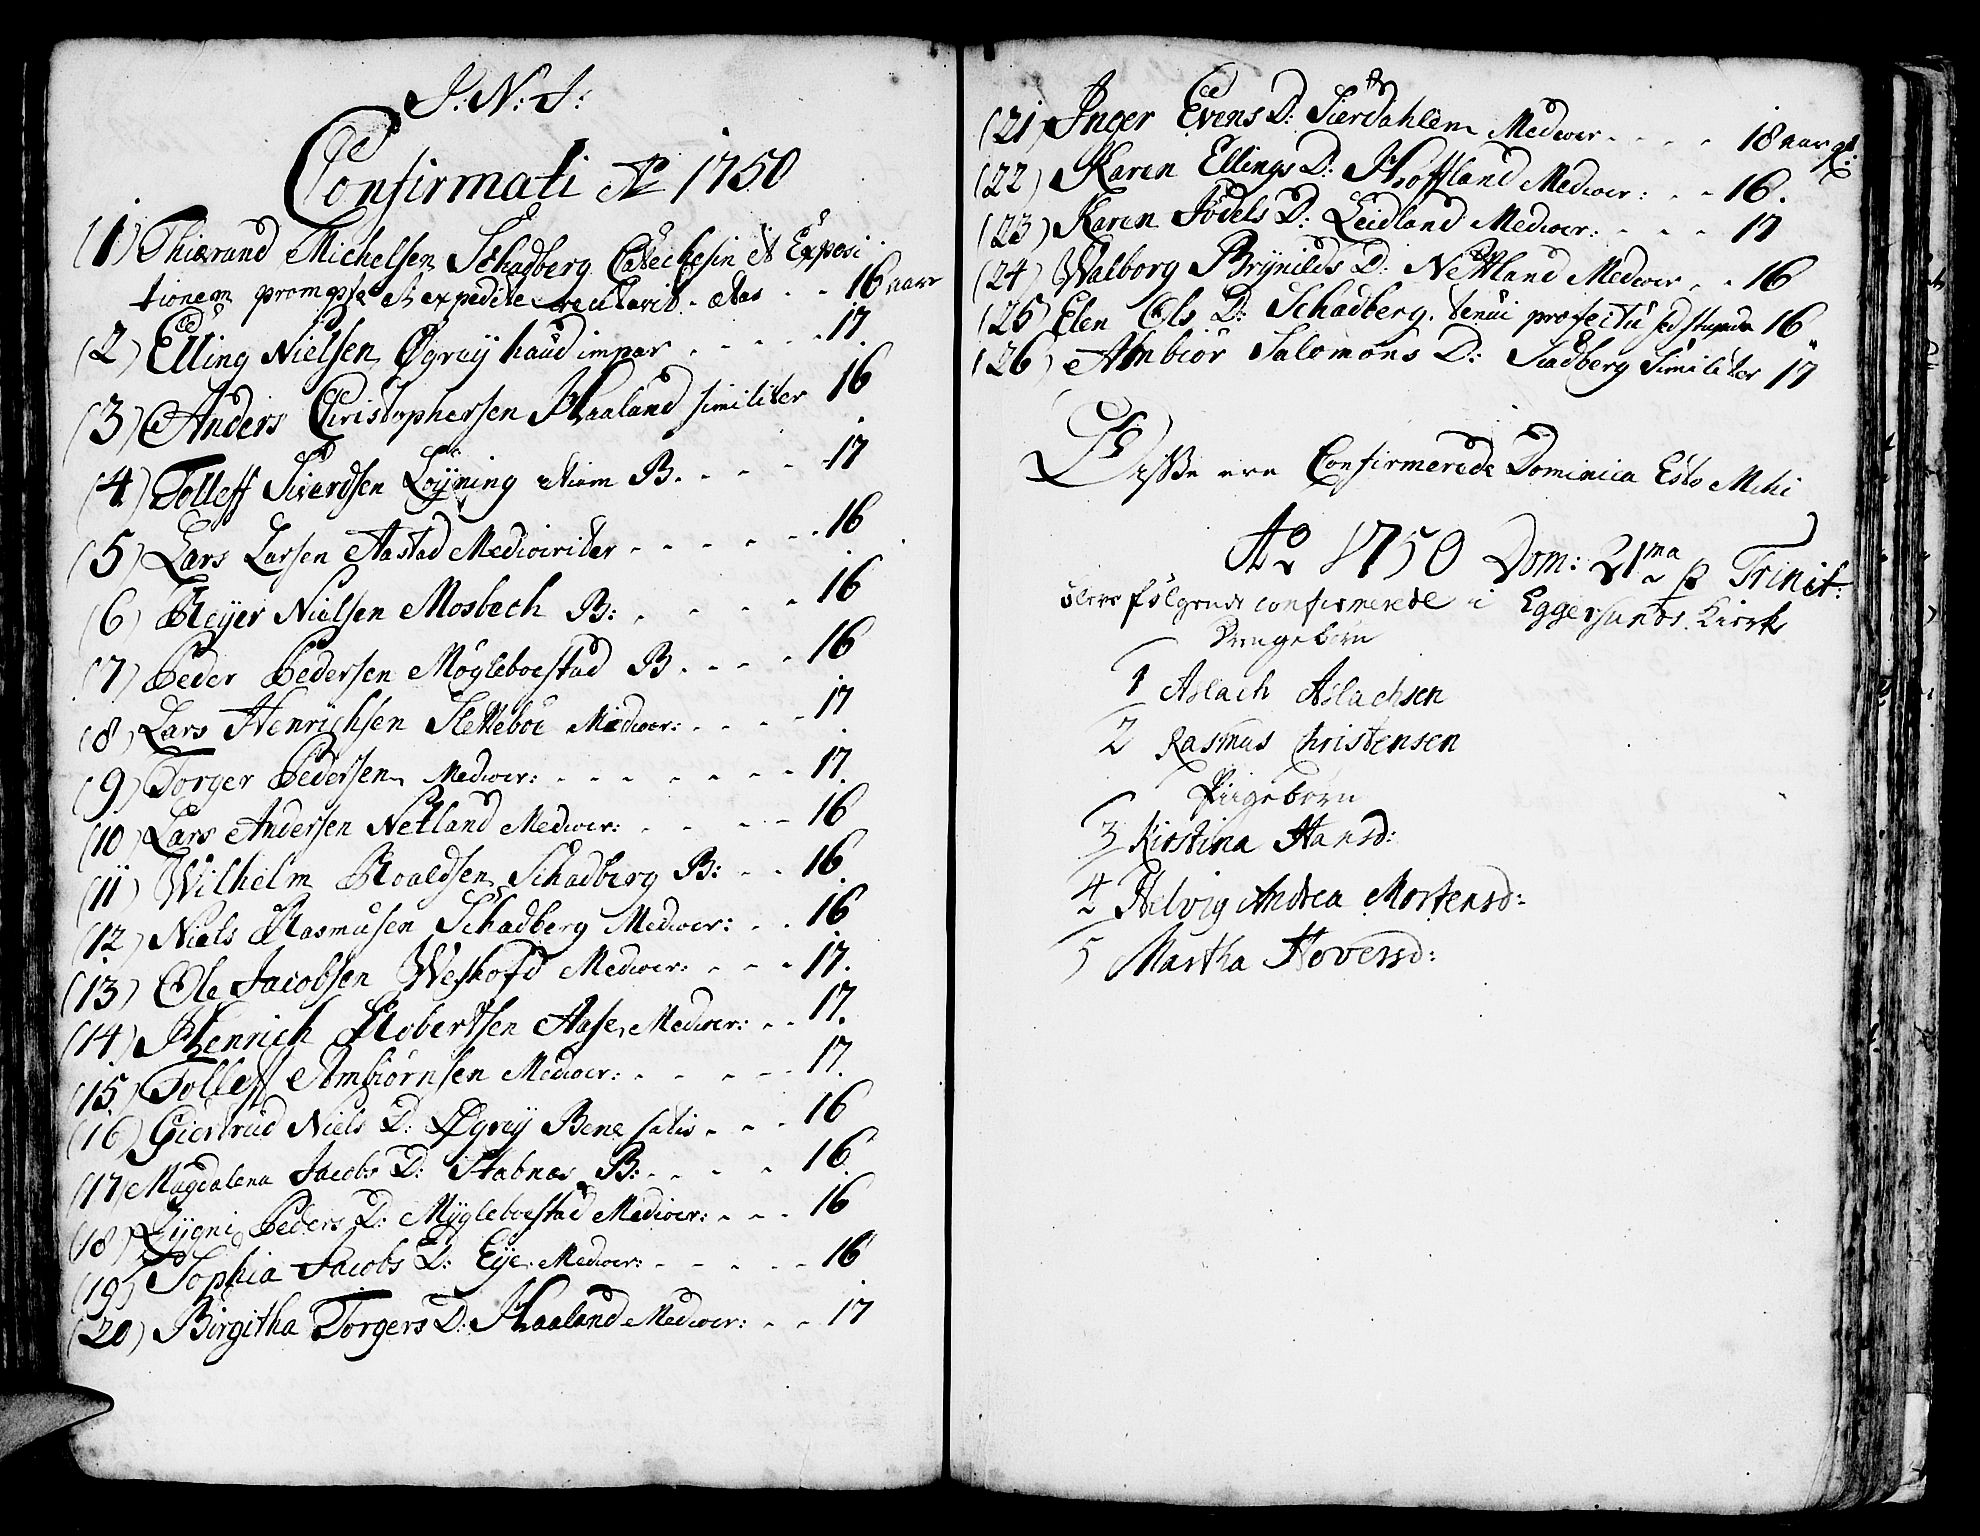 J: N: J:
Confirmati Ao 1750
(1) Thiærand Michelsen Schadberg Catechesin et Exposi
tionem prompte et expedite recitavit. ætas - - 16 aar
(2) Elling Nielsen Øgrey haud impar - - - - 17.
(3) Anders Christophersen Haaland similiter 16
(4) Tolleff Sivertsen Löyning etiam B. - - - 17
(5) Lars Larsen Aastad Mediocriter - - - - - - 16
(6) Reyer Nielsen Mosbech B: - - - - 16
(7) Peder Pedersen Mögleboestad B. - - - - 16
(8) Lars Henrichsen Sletteboe Mediocr: - - - - 17
(9) Torger Pedersen Mediocr: - - - - - - - - 17.
(10) Lars Andersen Netland Mediocr: - - - - - 16
(11) Wilhelm Roaldsen Schadberg B: - - 16.
(12) Niels Rasmusen Schadberg Mediocr: - - 16
(13) Ole Jacobsen Weshofd Mediocr: - - - 17.
(14) Henrich Robertsen Aase Mediocr: - - 17.
(15) Tolleff Ambiörnsen Mediocr: - - - - - 17.
(16) Giertrud Niels D: Øgrey Bene satis - - - 16
(17) Magdalena Jacobs D: Stabnæs B: - - - - 16.
(18) Zygni Peders D: Mygleboestad Mediocr: - - - 16
(19) Sophia Jacobs D: Eye Mediocr: - - - - - 16
(20) Birgitha Torgers D: Haaland Mediocr: - - 17
(21) Inger Evens D: Sierdahlem Mediocr - - - - 18 aar
(22) Karen Ellings D: Hoffland Mediocr: - - 16.
(23) Karen Jödels D: Leidland Mediocr: - - - - 17
(24) Walborg Brynilds D: Netland Mediocr - - 16
(25) Elen Ols D: Schadberg. tenui profectu sed 16
(26) Ambiör Salomons D: Scadberg Similiter 17
Disse ere Confirmerede Dominica Esto Mihi
Ao 1750 Dom: 21ma p Trinit:
bleve fölgende confirmerede i Eggersunds Kirk
Drengebörn
1 Aslach Aslachsen
2 Rasmus Christensen
Piigebörn
3 Kirstina Hansd:
4 Helvig Andrea Mortensd:
5 Martha Hoversd: